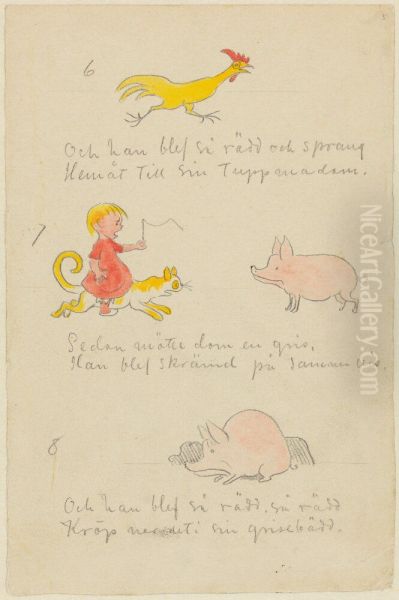 5
6
Och han blef så rädd och sprang
Hemåt till sin Tuppmadam.
7
Sedan mötte dom en gris,
Han blef skrämd på samma vis
8
Och han blef så rädd, så rädd
Kröp ner i sin grisebädd.
NiceArtGallery.com